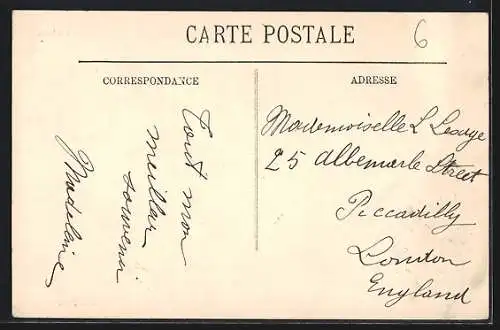 CARTE POSTALE
6
CORRESPONDANCE
ADRESSE
Tout mon
meillar
souvenir
Madeleine
Mademoiselle L Lesage
25 Albemarle Street
Piccadilly
London
England